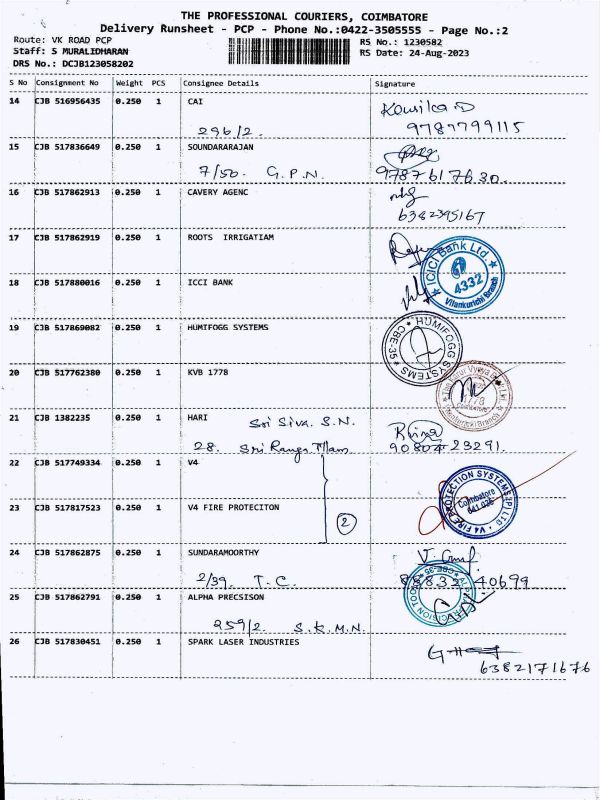 THE PROFESSIONAL COURIERS, COIMBATORE
Delivery Runsheet - PCP - Phone No.:0422-3505555 - Page No.:2
Route: VK ROAD PCP
RS No.: 1230582
Staff: S MURALIDHARAN
RS Date: 24-Aug-2023
DRS No.: DCJB123058202
S No Consignment No Weight PCS Consignee Details Signature
14 CJB 516956435 0.250 1 CAI
Kousika D
296/2. 9787799115
15 CJB 517836649 0.250 1 SOUNDARARAJAN
7/50. G.P.N. 9787617630.
16 CJB 517862913 0.250 1 CAVERY AGENC
6382395167
17 CJB 517862919 0.250 1 ROOTS IRRIGATIAM
ICICI Bank Ltd.
4332
Vilankurichi Branch
18 CJB 517880016 0.250 1 ICCI BANK
19 CJB 517869082 0.250 1 HUMIFOGG SYSTEMS
HUMIFOGG SYSTEMS
CBE-35
20 CJB 517762380 0.250 1 KVB 1778
1778
21 CJB 1382235 0.250 1 HARI
Sri Siva. S.N.
28. Sri Ranga 90804 23291.
22 CJB 517749334 0.250 1 V4
V4 FIRE PROTECTION SYSTEMS (P) LTD
Coimbatore
641 035
23 CJB 517817523 0.250 1 V4 FIRE PROTECITON
2
24 CJB 517862875 0.250 1 SUNDARAMOORTHY
2/39. T.C. 88832 40699
25 CJB 517862791 0.250 1 ALPHA PRECSISON
259/2 S.K.M.N.
26 CJB 517830451 0.250 1 SPARK LASER INDUSTRIES
6382171676